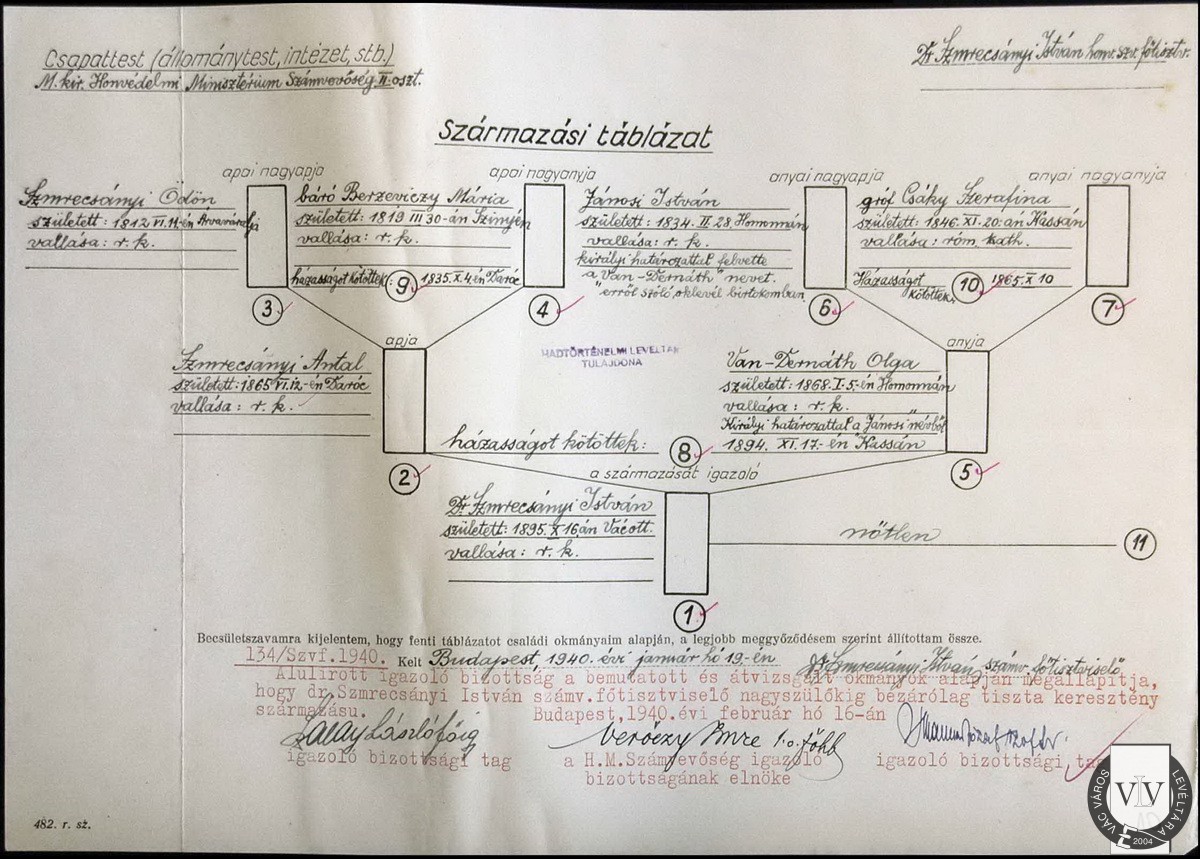 Csapattest (állománytest, intézet, stb.)
M. kir. Honvédelmi Minisztérium Számvevőség II. oszt.
Dr Szmrecsányi István honv. szv. főtisztv.
Származási táblázat
apai nagyapja
apai nagyanyja
anyai nagyapja
anyai nagyanyja
Szmrecsányi Ödön
született: 1812 VI. 11-én Árvaváralja
vallása: r. k.
3
báró Berzeviczy Mária
született: 1819 III 30-án Szinyén
vallása: r. k.
házasságot kötöttek: 9 1835. X. 4. én Daróc
4
Jánosi István
született: 1834. II. 28. Homonnán
vallása: r. k.
királyi határozattal felvette
a „Van-Dernáth" nevet.
erről szóló oklevél birtokomban
6
gróf Csáky Szerafina
született: 1846. XI. 20. án Kassán
vallása: róm. kath.
Házasságot kötöttek: 10 1865. X 10
7
HADTÖRTÉNELMI LEVÉLTÁR
TULAJDONA
apja
anyja
Szmrecsányi Antal
született: 1865 VI. 12.-én Daróc
vallása: r. k.
2
Van-Dernáth Olga
született: 1868. I. 5.-én Homonnán
vallása: r. k.
Királyi határozattal a „Jánosi" névből
házasságot kötöttek: 8 1894. XI. 17.-én Kassán
5
a származását igazoló
Dr Szmrecsányi István
született: 1895. X 16.án Vácott.
vallása: r. k.
1
nőtlen
11
Becsületszavamra kijelentem, hogy fenti táblázatot családi okmányaim alapján, a legjobb meggyőződésem szerint állítottam össze.
134/Szvf.1940. Kelt Budapest, 1940. évi január hó 19-én Dr Szmrecsányi István számv. főtisztviselő
Alulirott igazoló bizottság a bemutatott és átvizsgált okmányok alapján megállapitja,
hogy dr.Szmrecsányi István számv.főtisztviselő nagyszülőkig bezárólag tiszta keresztény
származásu. Budapest,1940.évi február hó 16-án
Zalay László főig
Verőczy Imre
igazoló bizottsági tag
a H.M.Számvevőség igazoló
bizottságának elnöke
igazoló bizottsági tag
482. r. sz.
VÁC VÁROS LEVÉLTÁRA
VLV
2004